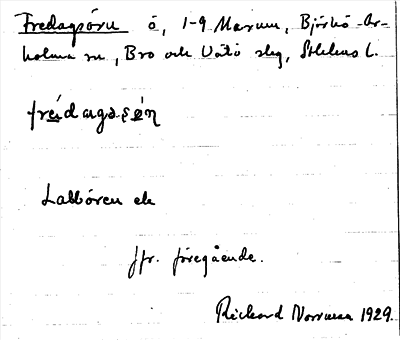 Fredagsören ö, 1-9 Marum, Björkö-Ar-
holma sn, Bro och Vätö slg, Sthlms l.
Labbören ek
jfr. föregående.
Rickard Norrman 1929.